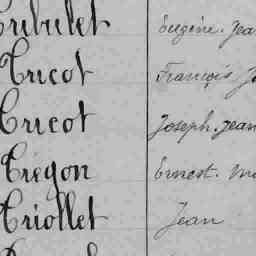 Tribulet Eugène. Jean
Tricot François J
Tricot Joseph. Jean
Trégon Ernest. Ma
Triollet Jean